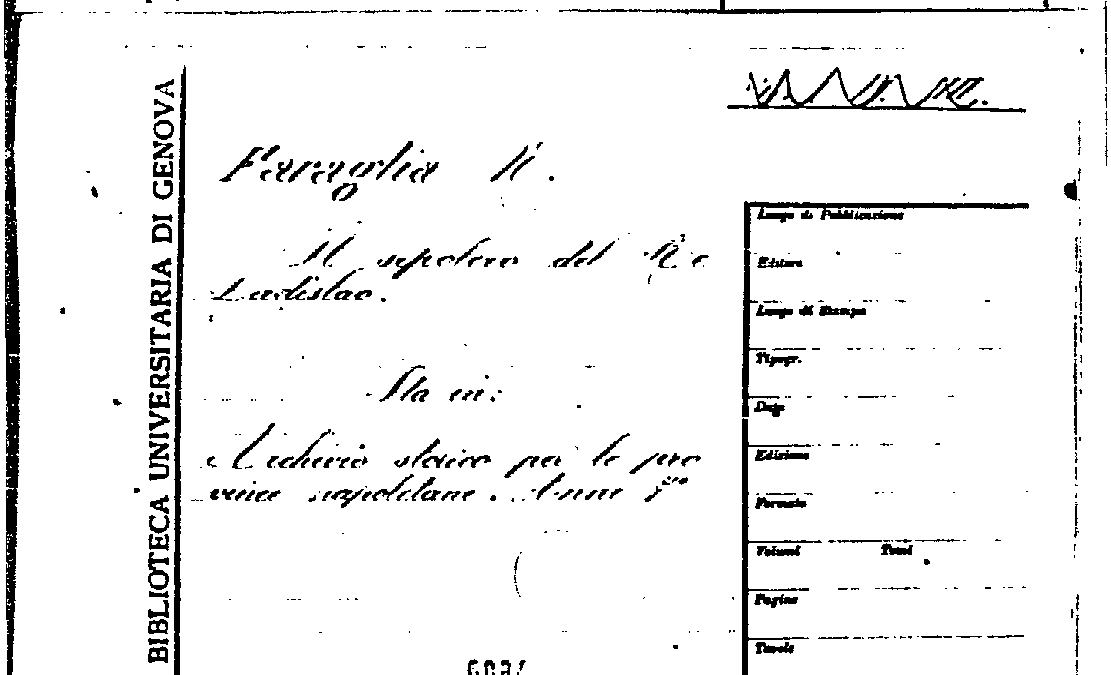 BIBLIOTECA UNIVERSITARIA DI GENOVA
Faraglia N.
Il sepolcro del Re
Ladislao.
Sta in:
Archivio storico per le pro
vince napoletane. Anno
Luogo di Pubblicazione
Editore
Luogo di Stampa
Tipogr.
Data
Edizione
Formato
Volumi Tomi
Pagine
Tavole